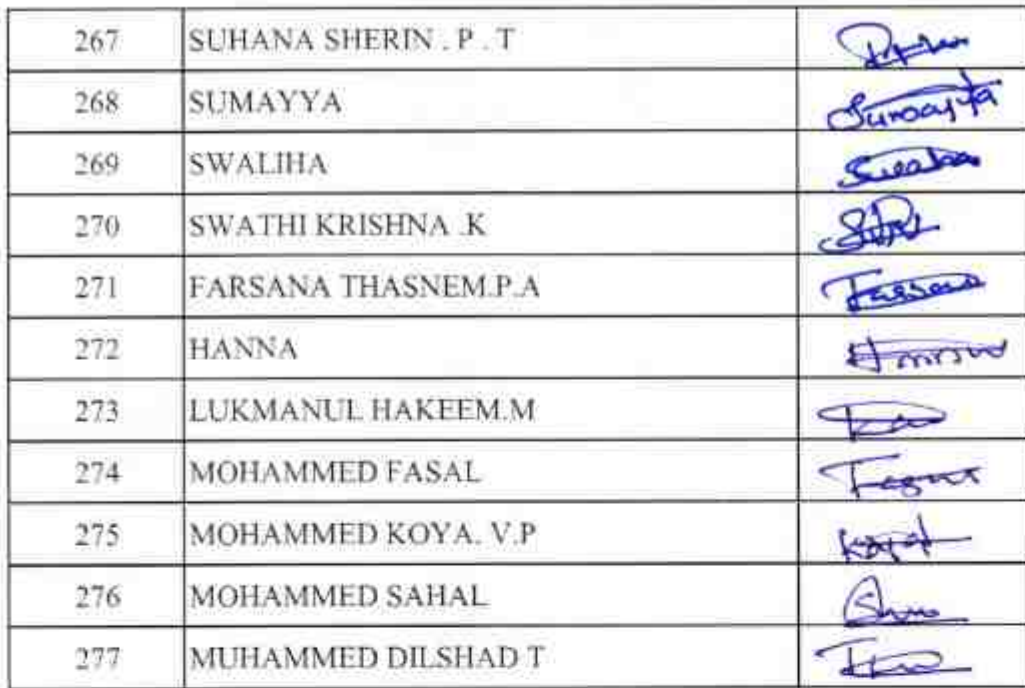 267 SUHANA SHERIN . P . T
268 SUMAYYA Sumayya
269 SWALIHA
270 SWATHI KRISHNA .K
271 FARSANA THASNEM.P.A Farsana
272 HANNA
273 LUKMANUL HAKEEM.M
274 MOHAMMED FASAL
275 MOHAMMED KOYA. V.P
276 MOHAMMED SAHAL
277 MUHAMMED DILSHAD T